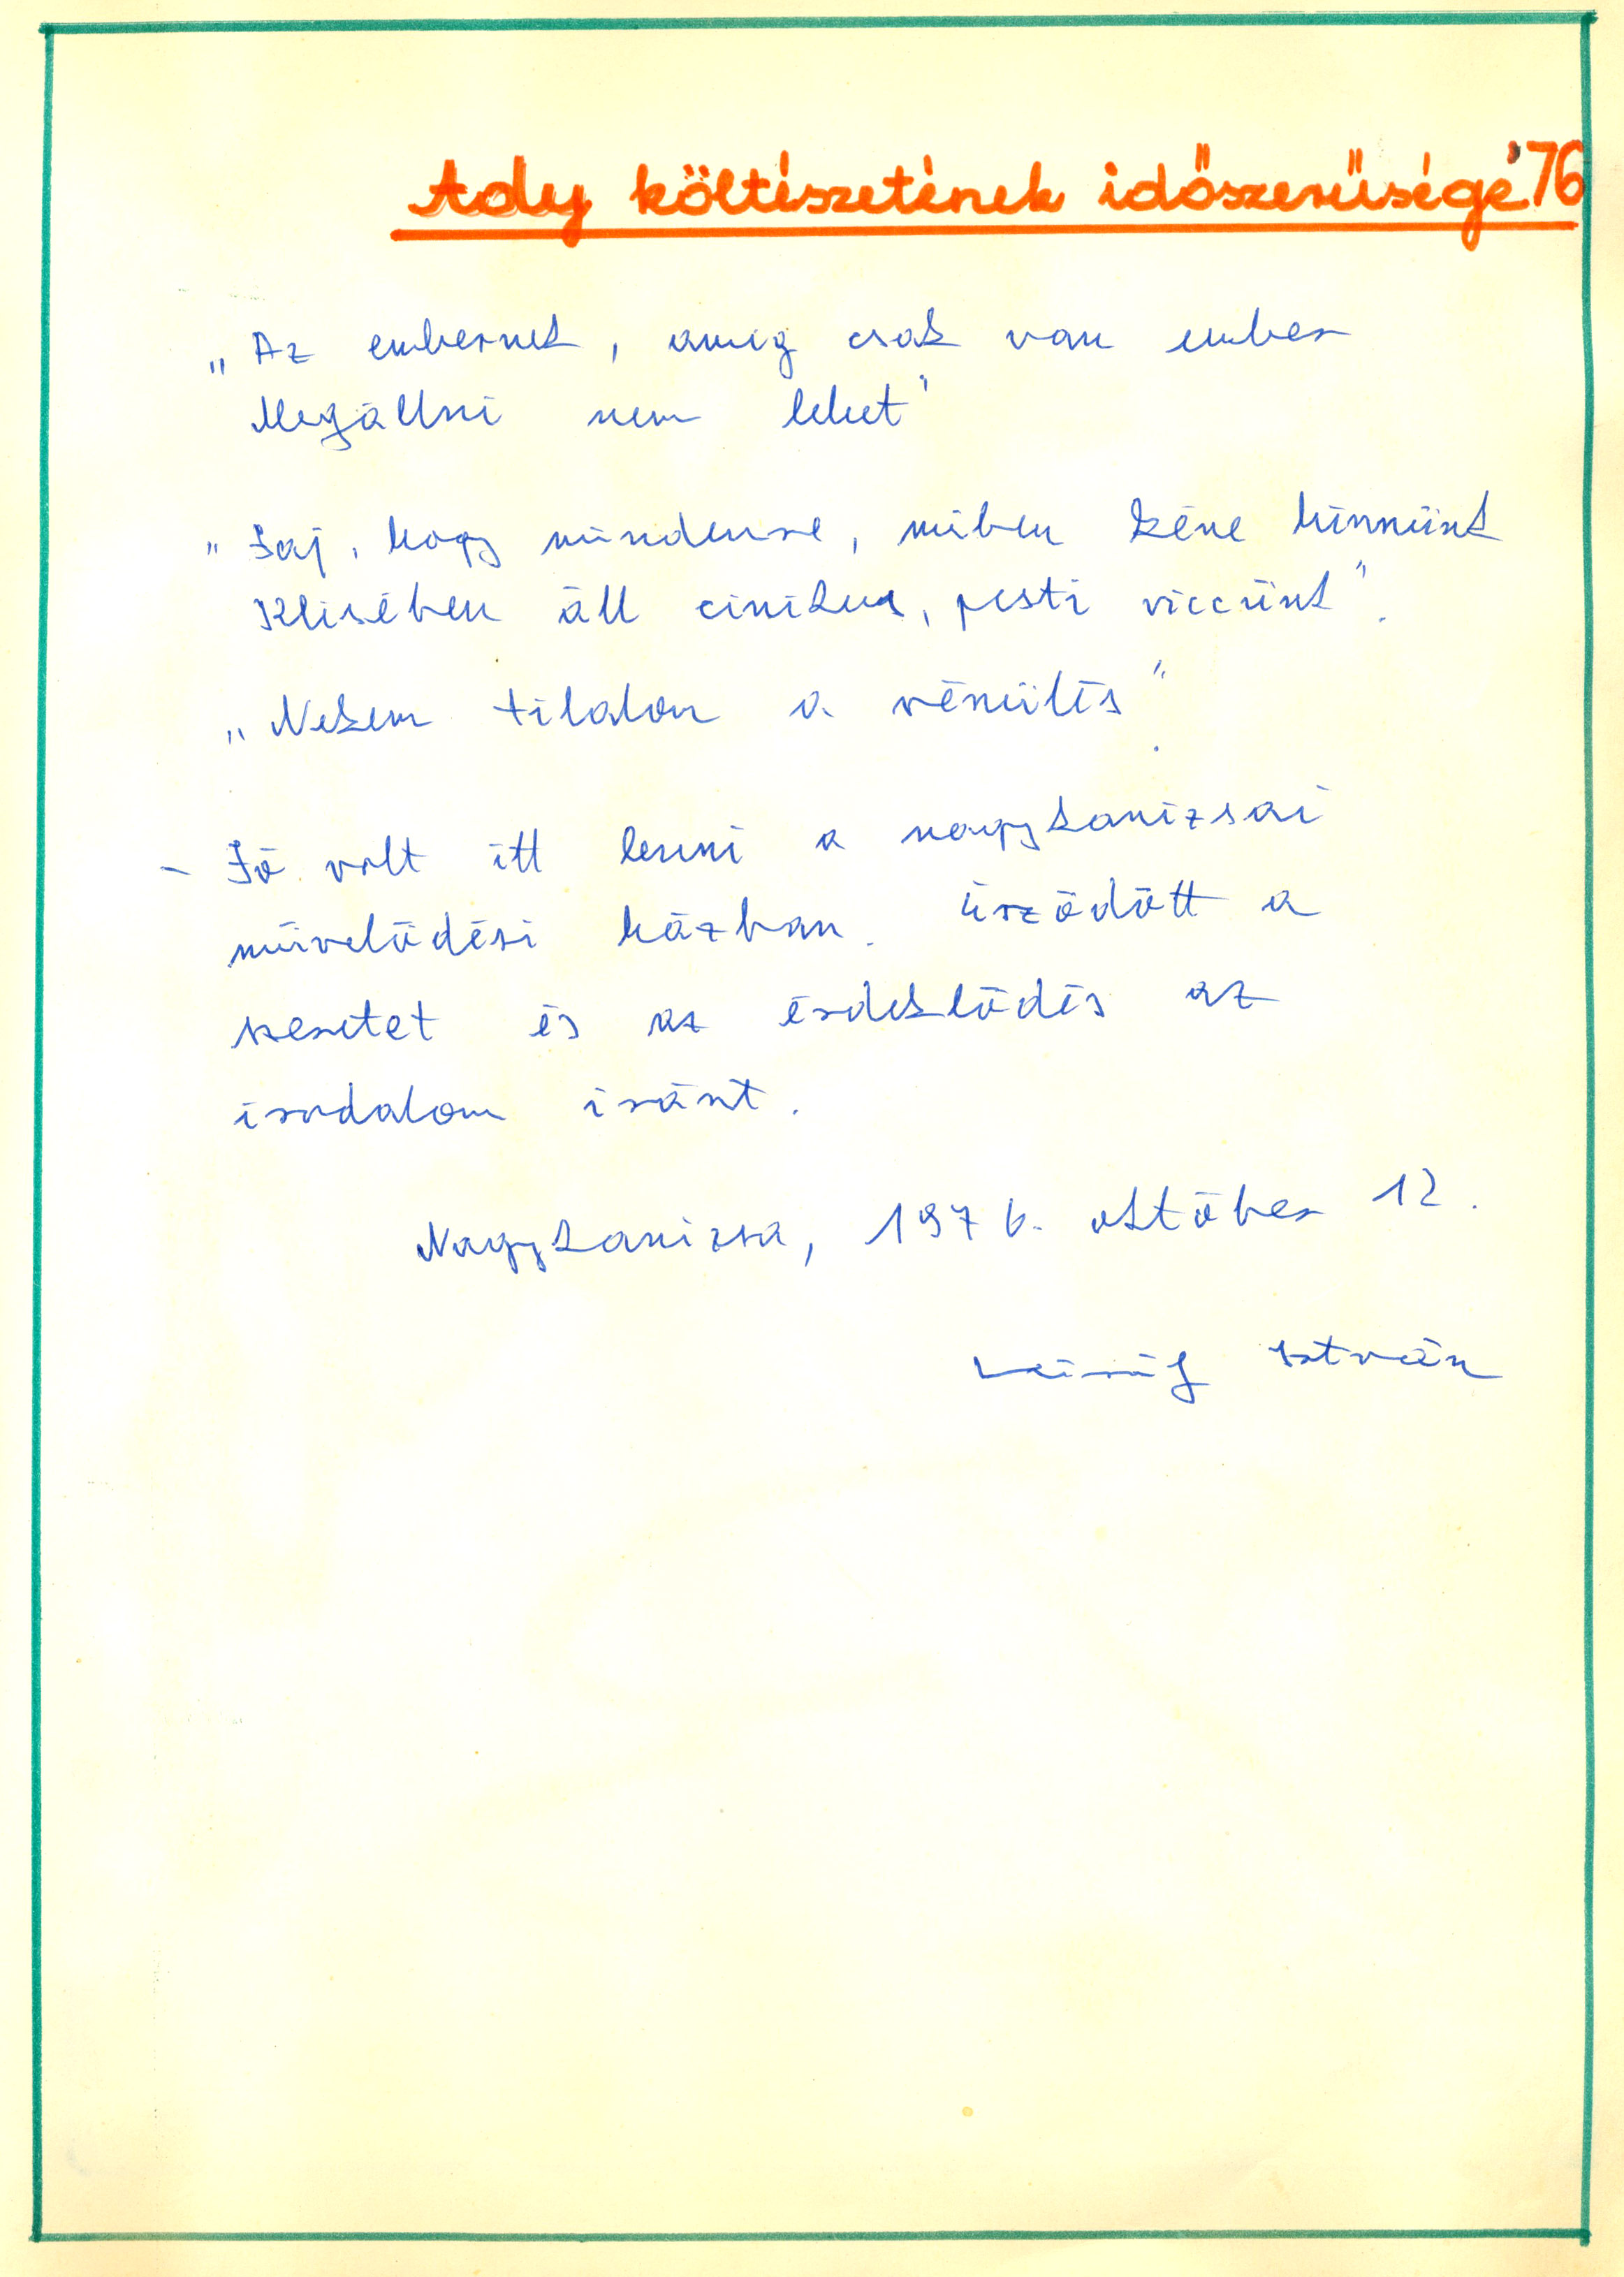 Ady költészetének időszerűsége '76
„Az embernek, amíg csak van ember
Megállni nem lehet"
„Jaj, hogy mindenre, miben kéne hinnünk
Készében áll cinikus, pesti viccünk".
„Nekem tilalom a vénülés".
- Jó volt itt lenni a nagykanizsai
művelődési házban. Izzódott a
szeretet és az érdeklődés az
irodalom iránt.
Nagykanizsa, 1976. október 12.
István